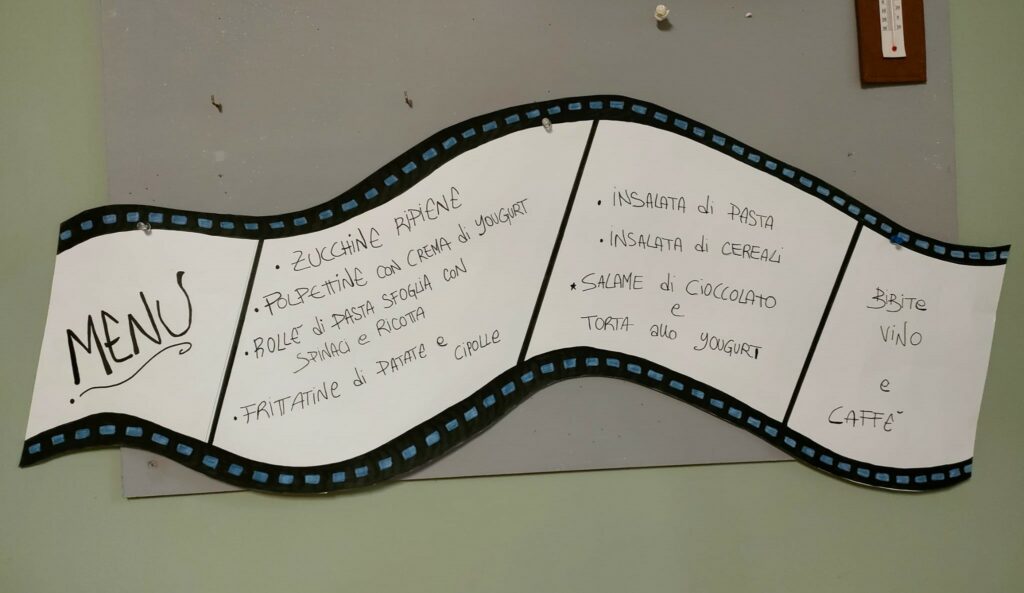 MENU
• ZUCCHINE RIPIENE
• POLPETTINE CON CREMA di YOUGURT
• ROLLÉ di PASTA SFOGLIA CON
SPINACI e RICOTTA
• FRITTATINE di PATATE e CIPOLLE
• INSALATA di PASTA
• INSALATA di CEREALI
* SALAME di CIOCCOLATO
e
TORTA allo YOUGURT
BIBITE
VINO
e
CAFFÈ